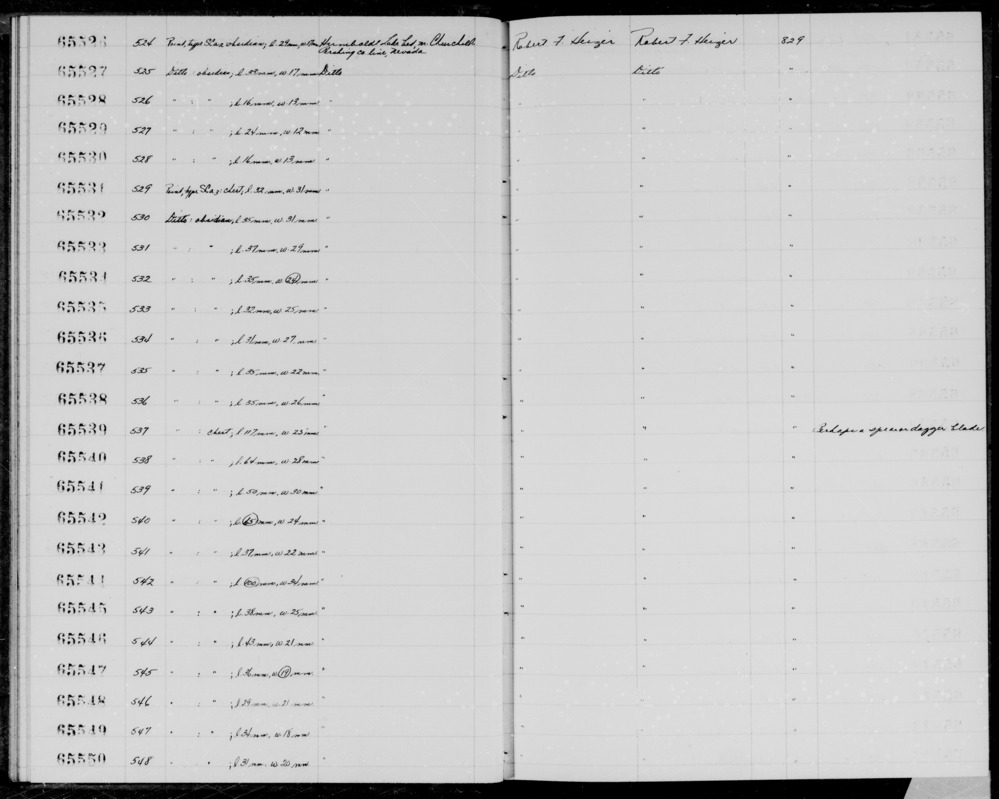 65526 524 Point, type SCa2 obsidian; l. 29mm, w. mm Humboldt Lake bed, nr. Churchill- Robert F. Heizer Robert F. Heizer 829
Pershing co. line, Nevada
65527 525 Ditto : obsidian; l. mm, w. 17 mm Ditto Ditto Ditto "
65528 526 " : " ; l. 16 mm, w. 13 mm " " " "
65529 527 " : " ; l. 24 mm, w. 12 mm " " " "
65530 528 " : " ; l. 16 mm, w. 13 mm " " " "
65531 529 Point, type ; chert; l. 32 mm, w. 31 mm " " " "
65532 530 Ditto : obsidian; l. 35 mm, w. 31 mm " " " "
65533 531 " : " ; l. 37 mm, w. 29 mm " " " "
65534 532 " : " ; l. 35 mm, w. mm " " " "
65535 533 " : " ; l. 32 mm, w. 25 mm " " " "
65536 534 " : " ; l. 31 mm, w. 27 mm " " " "
65537 535 " : " ; l. 35 mm, w. 22 mm " " " "
65538 536 " : " ; l. 35 mm, w. 26 mm " " " "
65539 537 " : chert; l. 117 mm, w. 23 mm " " " " Perhaps a spear or dagger blade
65540 538 " : " ; l. 64 mm, w. 28 mm " " " "
65541 539 " : " ; l. 50 mm, w. 30 mm " " " "
65542 540 " : " ; l. mm, w. 24 mm " " " "
65543 541 " : " ; l. 37 mm, w. 22 mm " " " "
65544 542 " : " ; l. mm, w. 34 mm " " " "
65545 543 " : " ; l. 38 mm, w. 25 mm " " " "
65546 544 " : " ; l. 43 mm, w. 21 mm " " " "
65547 545 " : " ; l. 36 mm, w. 19 mm " " " "
65548 546 " : " ; l. 29 mm, w. 21 mm " " " "
65549 547 " : " ; l. 34 mm, w. 18 mm " " " "
65550 548 " : " ; l. 31 mm, w. 20 mm " " " "